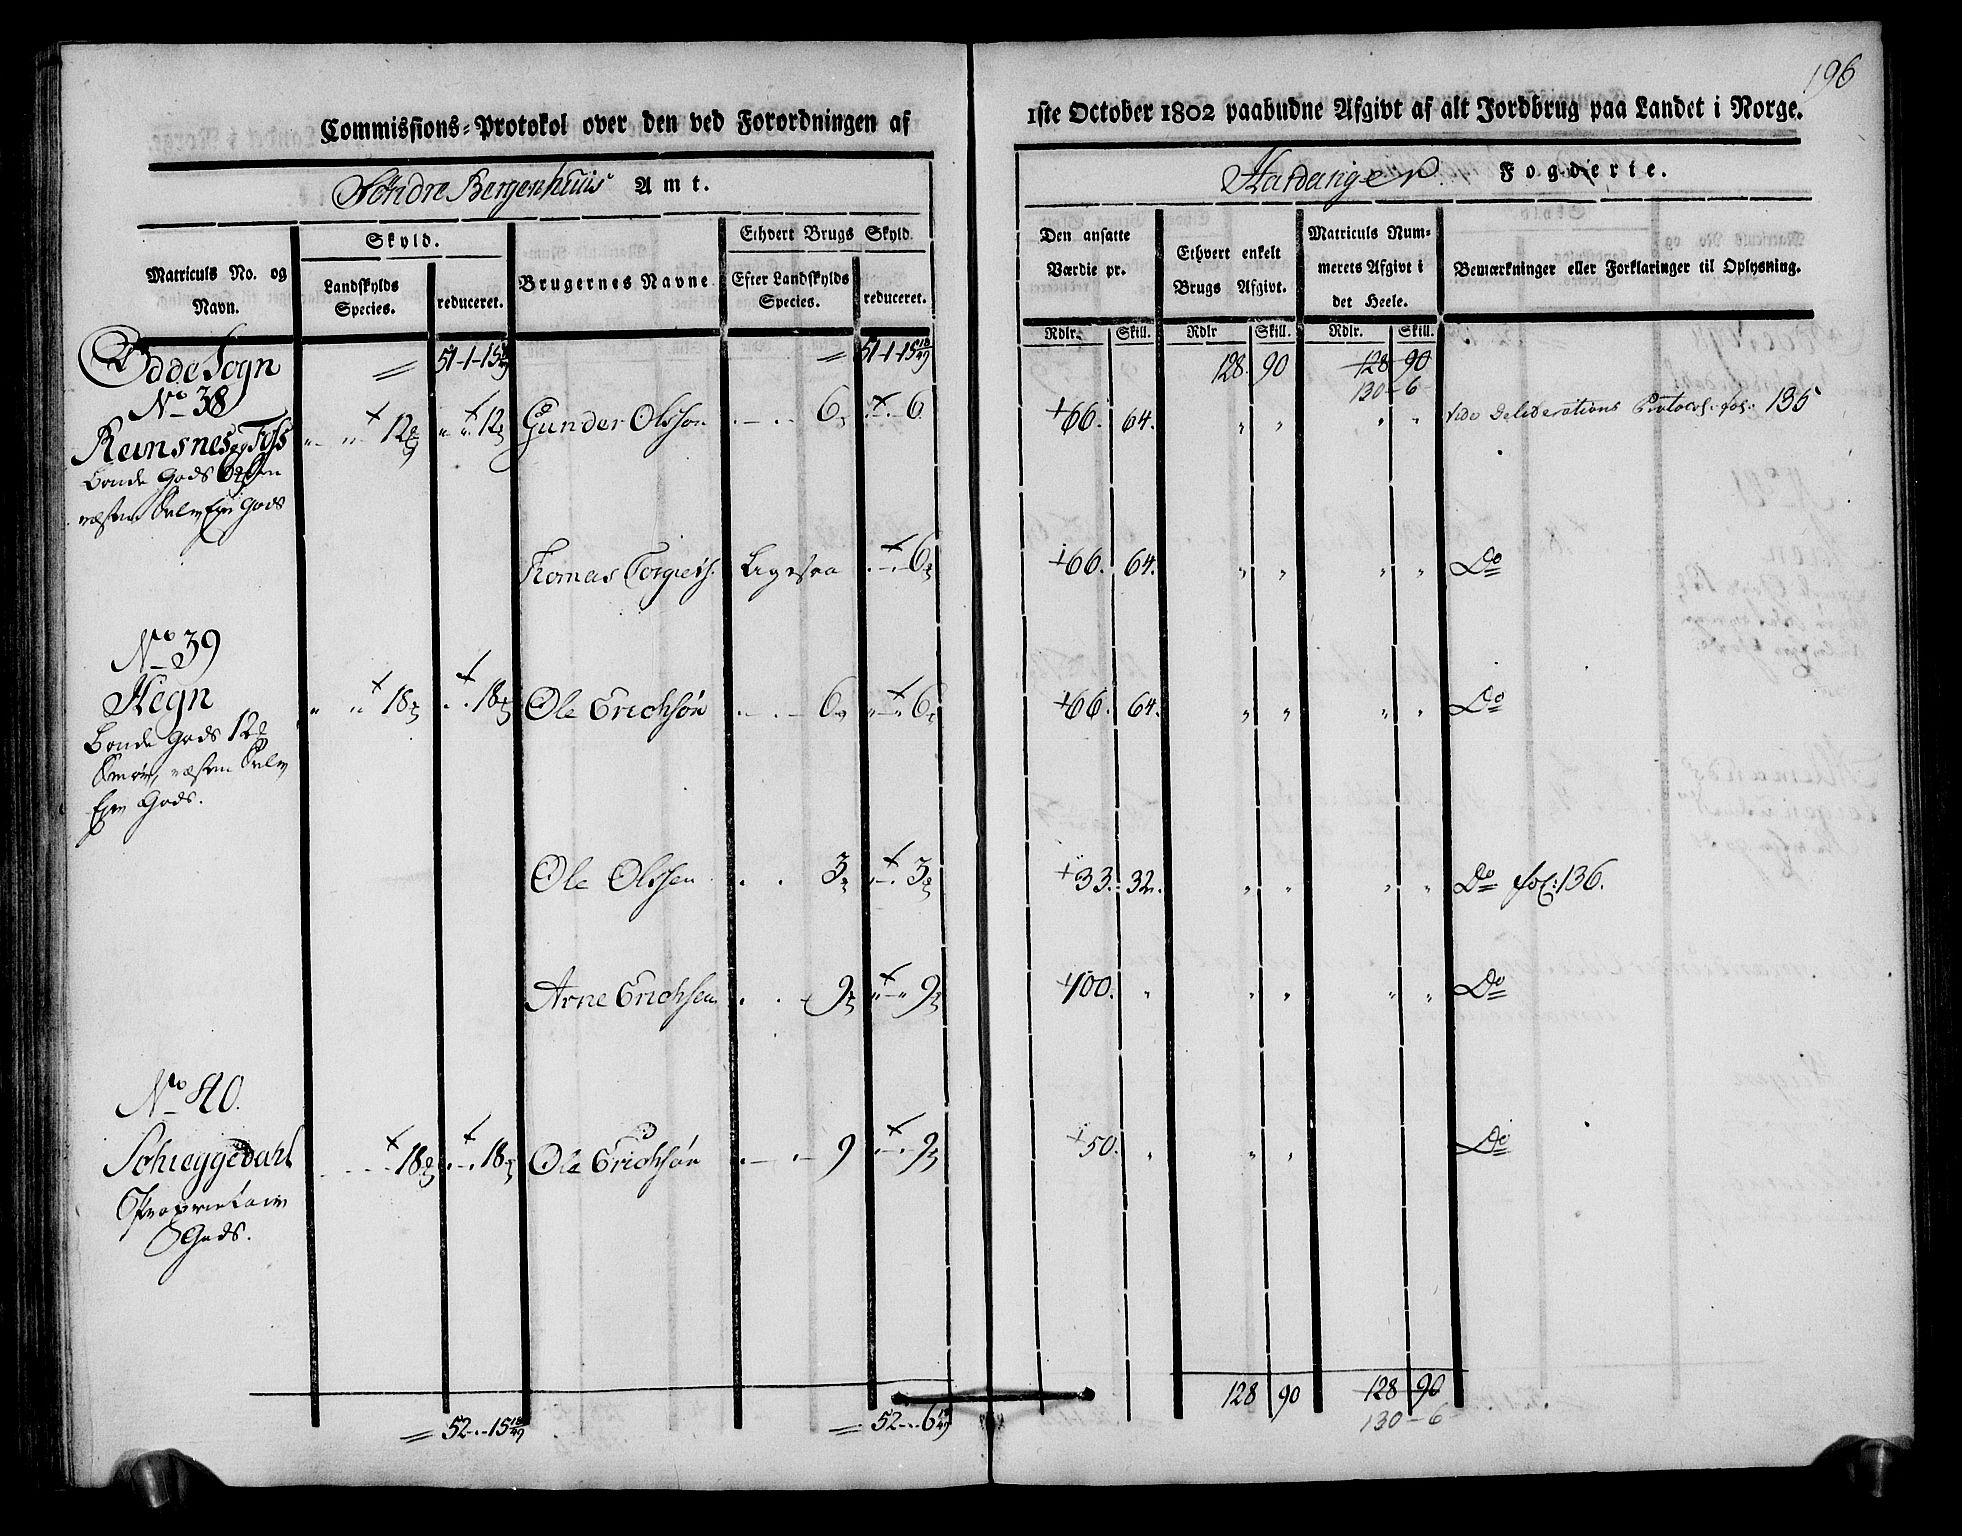 196
Commissions-Protokol over den ved Forordningen af
1ste October 1802 paabudne Afgivt af alt Jordbrug paa Landet i Norge.
Söndre Bergenhuus Amt.
Hardanger Fogderie.
Matriculs No. og Navn.
Skyld.
Landskylds Species.
reduceret.
Brugernes Navne
Ethvert Brugs Skyld.
Efter Landskylds Species.
reduceret.
Den ansatte Værdie pr.
Ethvert enkelt Brugs Afgivt.
Matriculs Nummerets Afgivt i det Heele.
Bemærkninger eller Forklaringer til Oplysning.
Rdlr. Skill. Rdlr Skill. Rdlr. Skill.
Odde Sogn = 51-1-15 18/49 = 51-1-15 18/49 128. 90 128 90
130-6-
No 38
Reinsnes og Foss 12 12 Gunder Olsson 6 6 66. 64. Vide Deliberations Protocol fol. 135
Bonde Gods
næsten Selv Eyer Gods
Tomas Torgiels. Ligesaa 6 66. 64. Do
No 39
Hegn 18 18 Ole Erichsön 6 6 66. 64. Do
Bonde Gods 12
Smör, næsten Selv
Eyer Gods.
Ole Olssen 3 3 33. 32. Do fol: 136.
Arne Erichsen 9 9 100. Do
No 40.
Schieggedahl 18 18 Ole Erichsön 9 9 50. Do
Proprietair
Gods.
128 90 128 90
= 52-.-15 18/49 = 52-.-6 18/49 130-6-